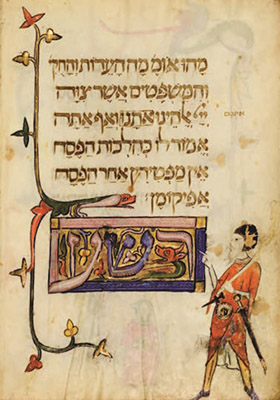 מהו אומ׳ מה העדות והחק
והמשפטים אשר צוה
אלהינו אתנו ואף אתה
אמור לו כהלכות הפסח
אין מפטירין אחר הפסח
אפיקומן
רשע